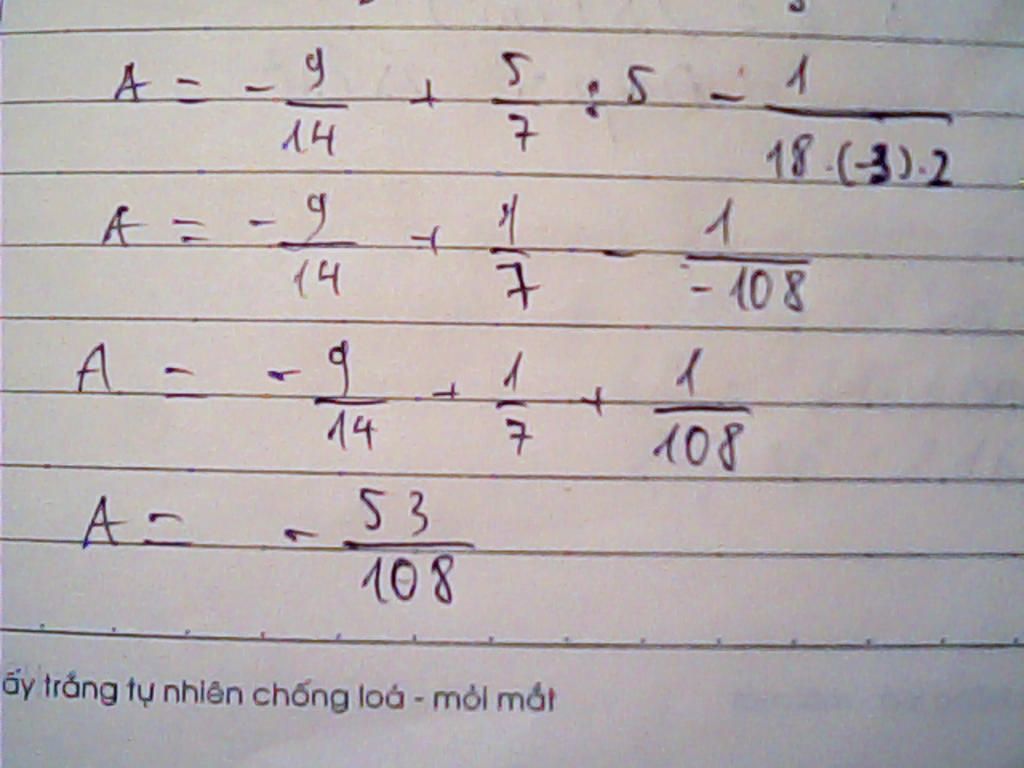 A = - 9/14 + 5/7 : 5 - 1/18.(-3).2
A = - 9/14 + 1/7 - 1/-108
A = - 9/14 + 1/7 + 1/108
A = - 53/108
ấy trắng tự nhiên chống loá - mỏi mắt